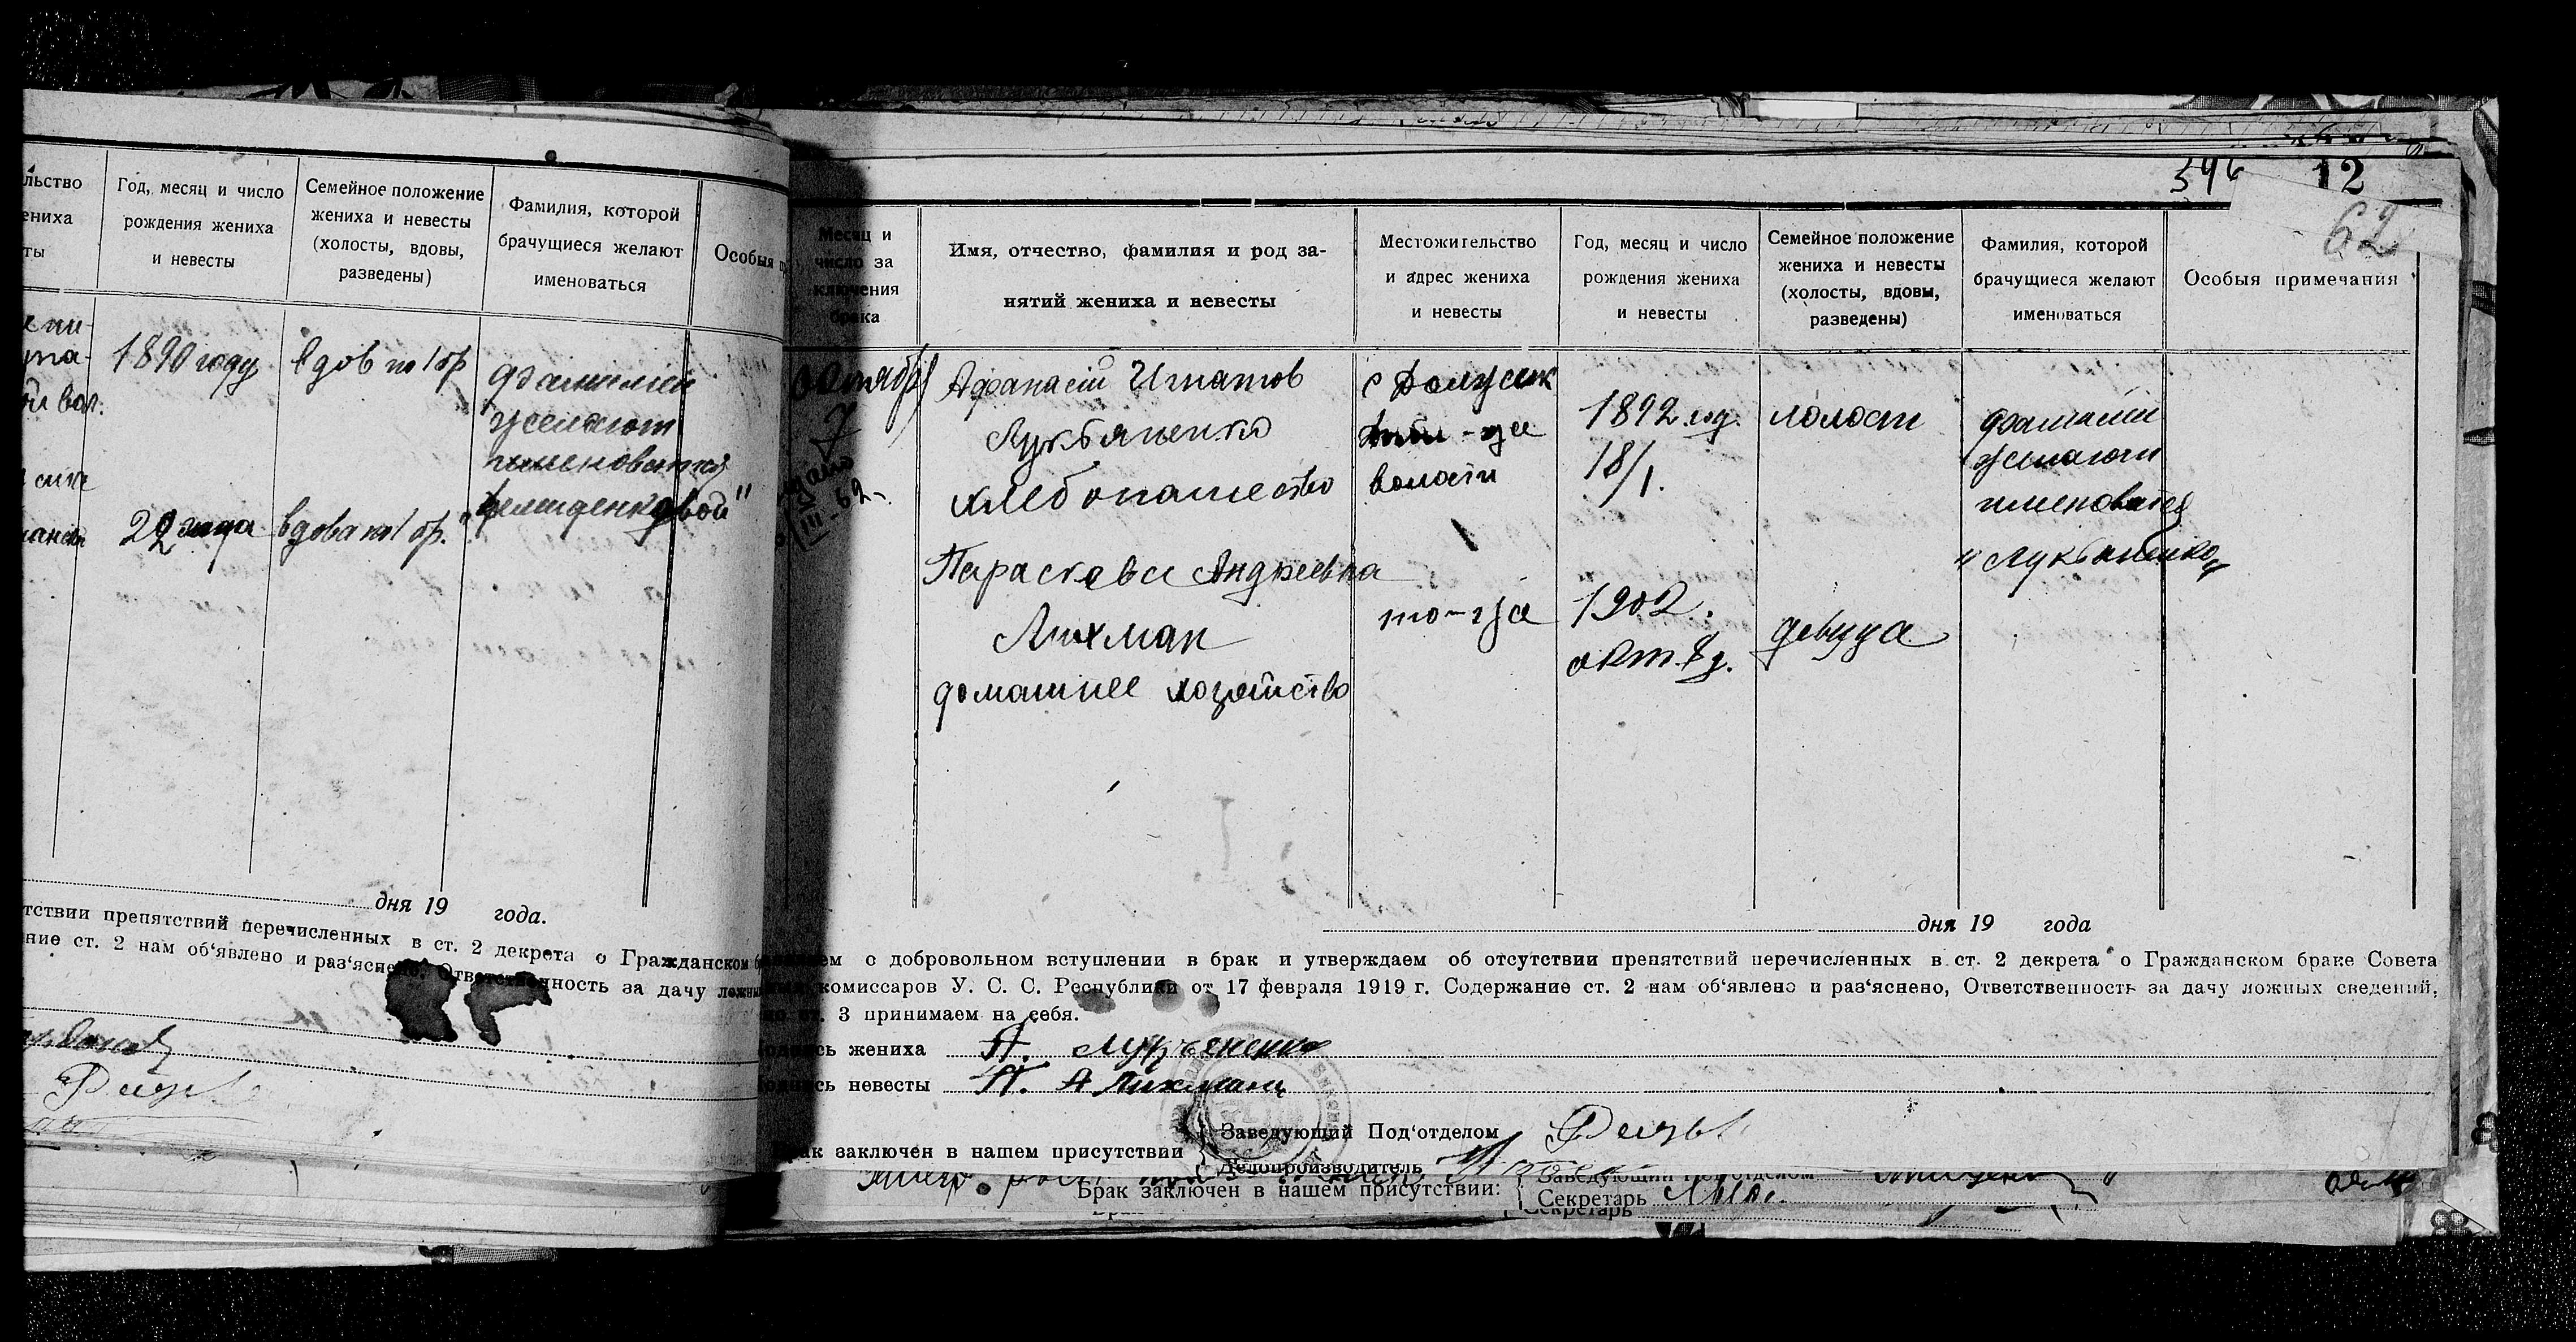 льство
ениха
ты
Год, месяц и число
рождения жениха
и невесты
Семейное положение
жениха и невесты
(холосты, вдовы,
разведены)
Фамилия, которой
брачущиеся желают
именоваться
Особыя п
1890 году
вдов по 1 бр
фамилией
желают
именоватся
22 года
вдова по 1 бр.
дня 19 года.
тствии препятствий перечисленных в ст. 2 декрета о Гражданском
ние ст. 2 нам об'явлено и раз'яснено, Ответственность за дачу ложны
396 12
62
Месяц и
число за
ключения
брака
Имя, отчество, фамилия и род за-
нятий жениха и невесты
Местожительство
и адрес жениха
и невесты
Год, месяц и число
рождения жениха
и невесты
Семейное положение
жениха и невесты
(холосты, вдовы,
разведены)
Фамилия, которой
брачущиеся желают
именоваться
Особыя примечания
Октября
7
III-62
Афанасий Игнатов
Лукьяненко
хлебопашество
волости
1892 год.
18/1.
холост
фамилией
желают
именоватся
"Лукьяненко"
Параскева Андреевна
Лихман
домашнее хозяйство
то-жа
1902.
окт. 8 д.
девица
дня 19 года
ем о добровольном вступлении в брак и утверждаем об отсутствии препятствий перечисленных в ст. 2 декрета о Гражданском браке Совета
комиссаров У. С. С. Республики от 17 февраля 1919 г. Содержание ст. 2 нам об'явлено и раз'яснено, Ответственность за дачу ложных сведений,
ст. 3 принимаем на себя.
сь жениха А. Лукьяненко
сь невесты П. А Лихман
Брак заключен в нашем присутствии
Заведующий Под'отделом
Делопроизводитель
Брак заключен в нашем присутствии:
Заведующий Под'отделом
Секретарь
Секретарь